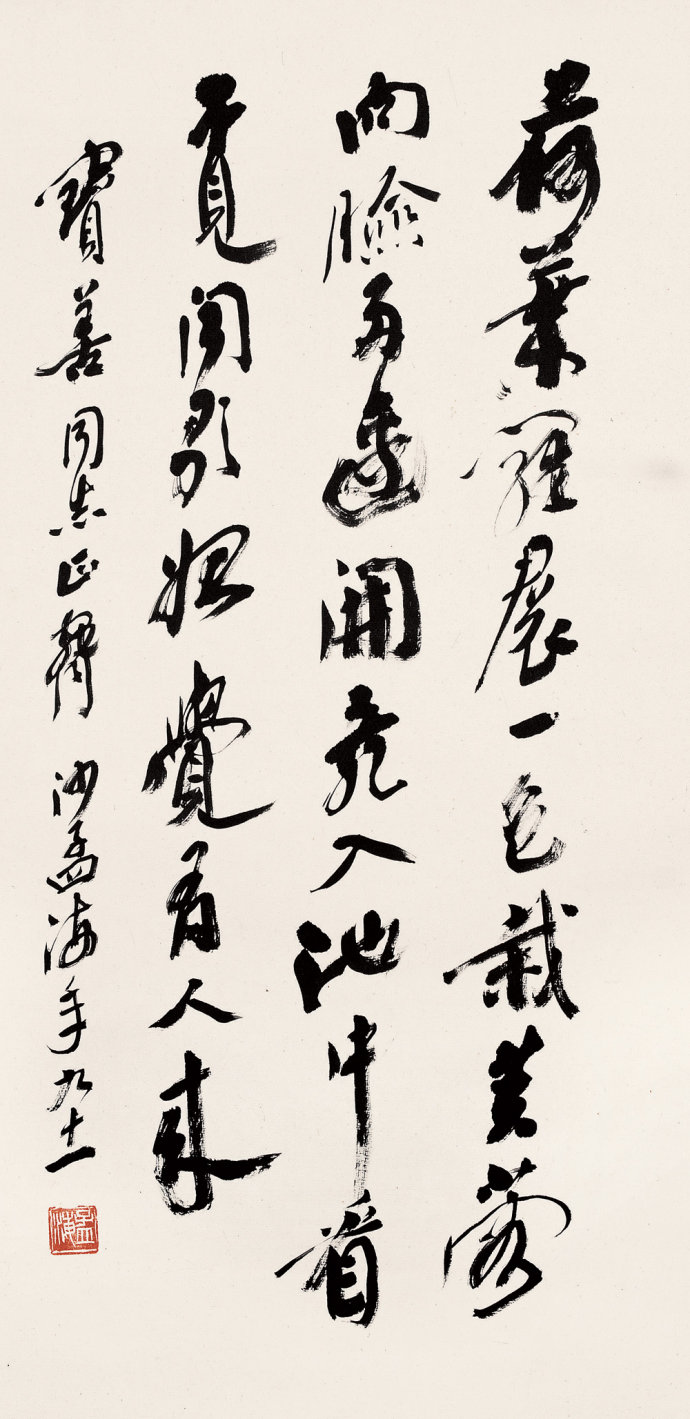 荷葉羅裠一色裁芙蓉
向臉兩邊開亂入池中看
不見聞歌始覺有人來
寶善同志正 沙孟海年九十一
孟海